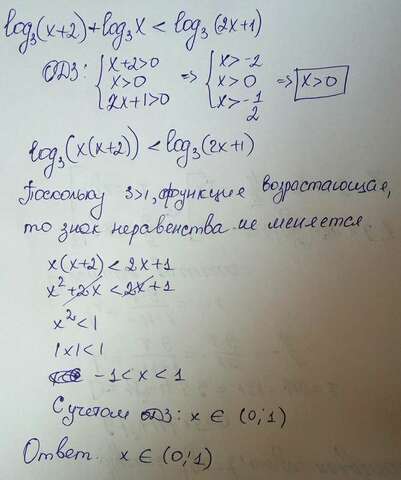 log₃(x+2)+log₃x < log₃(2x+1)
ОДЗ: { x+2>0 => { x>-2
x>0 x>0 => x>0
2x+1>0 x>-1/2
log₃(x(x+2)) < log₃(2x+1)
Поскольку 3>1, функция возрастающая,
то знак неравенства не меняется
x(x+2) < 2x+1
x²+2x < 2x+1
x² < 1
|x| < 1
-1 < x < 1
С учетом ОДЗ: x ∈ (0; 1)
Ответ. x ∈ (0; 1)